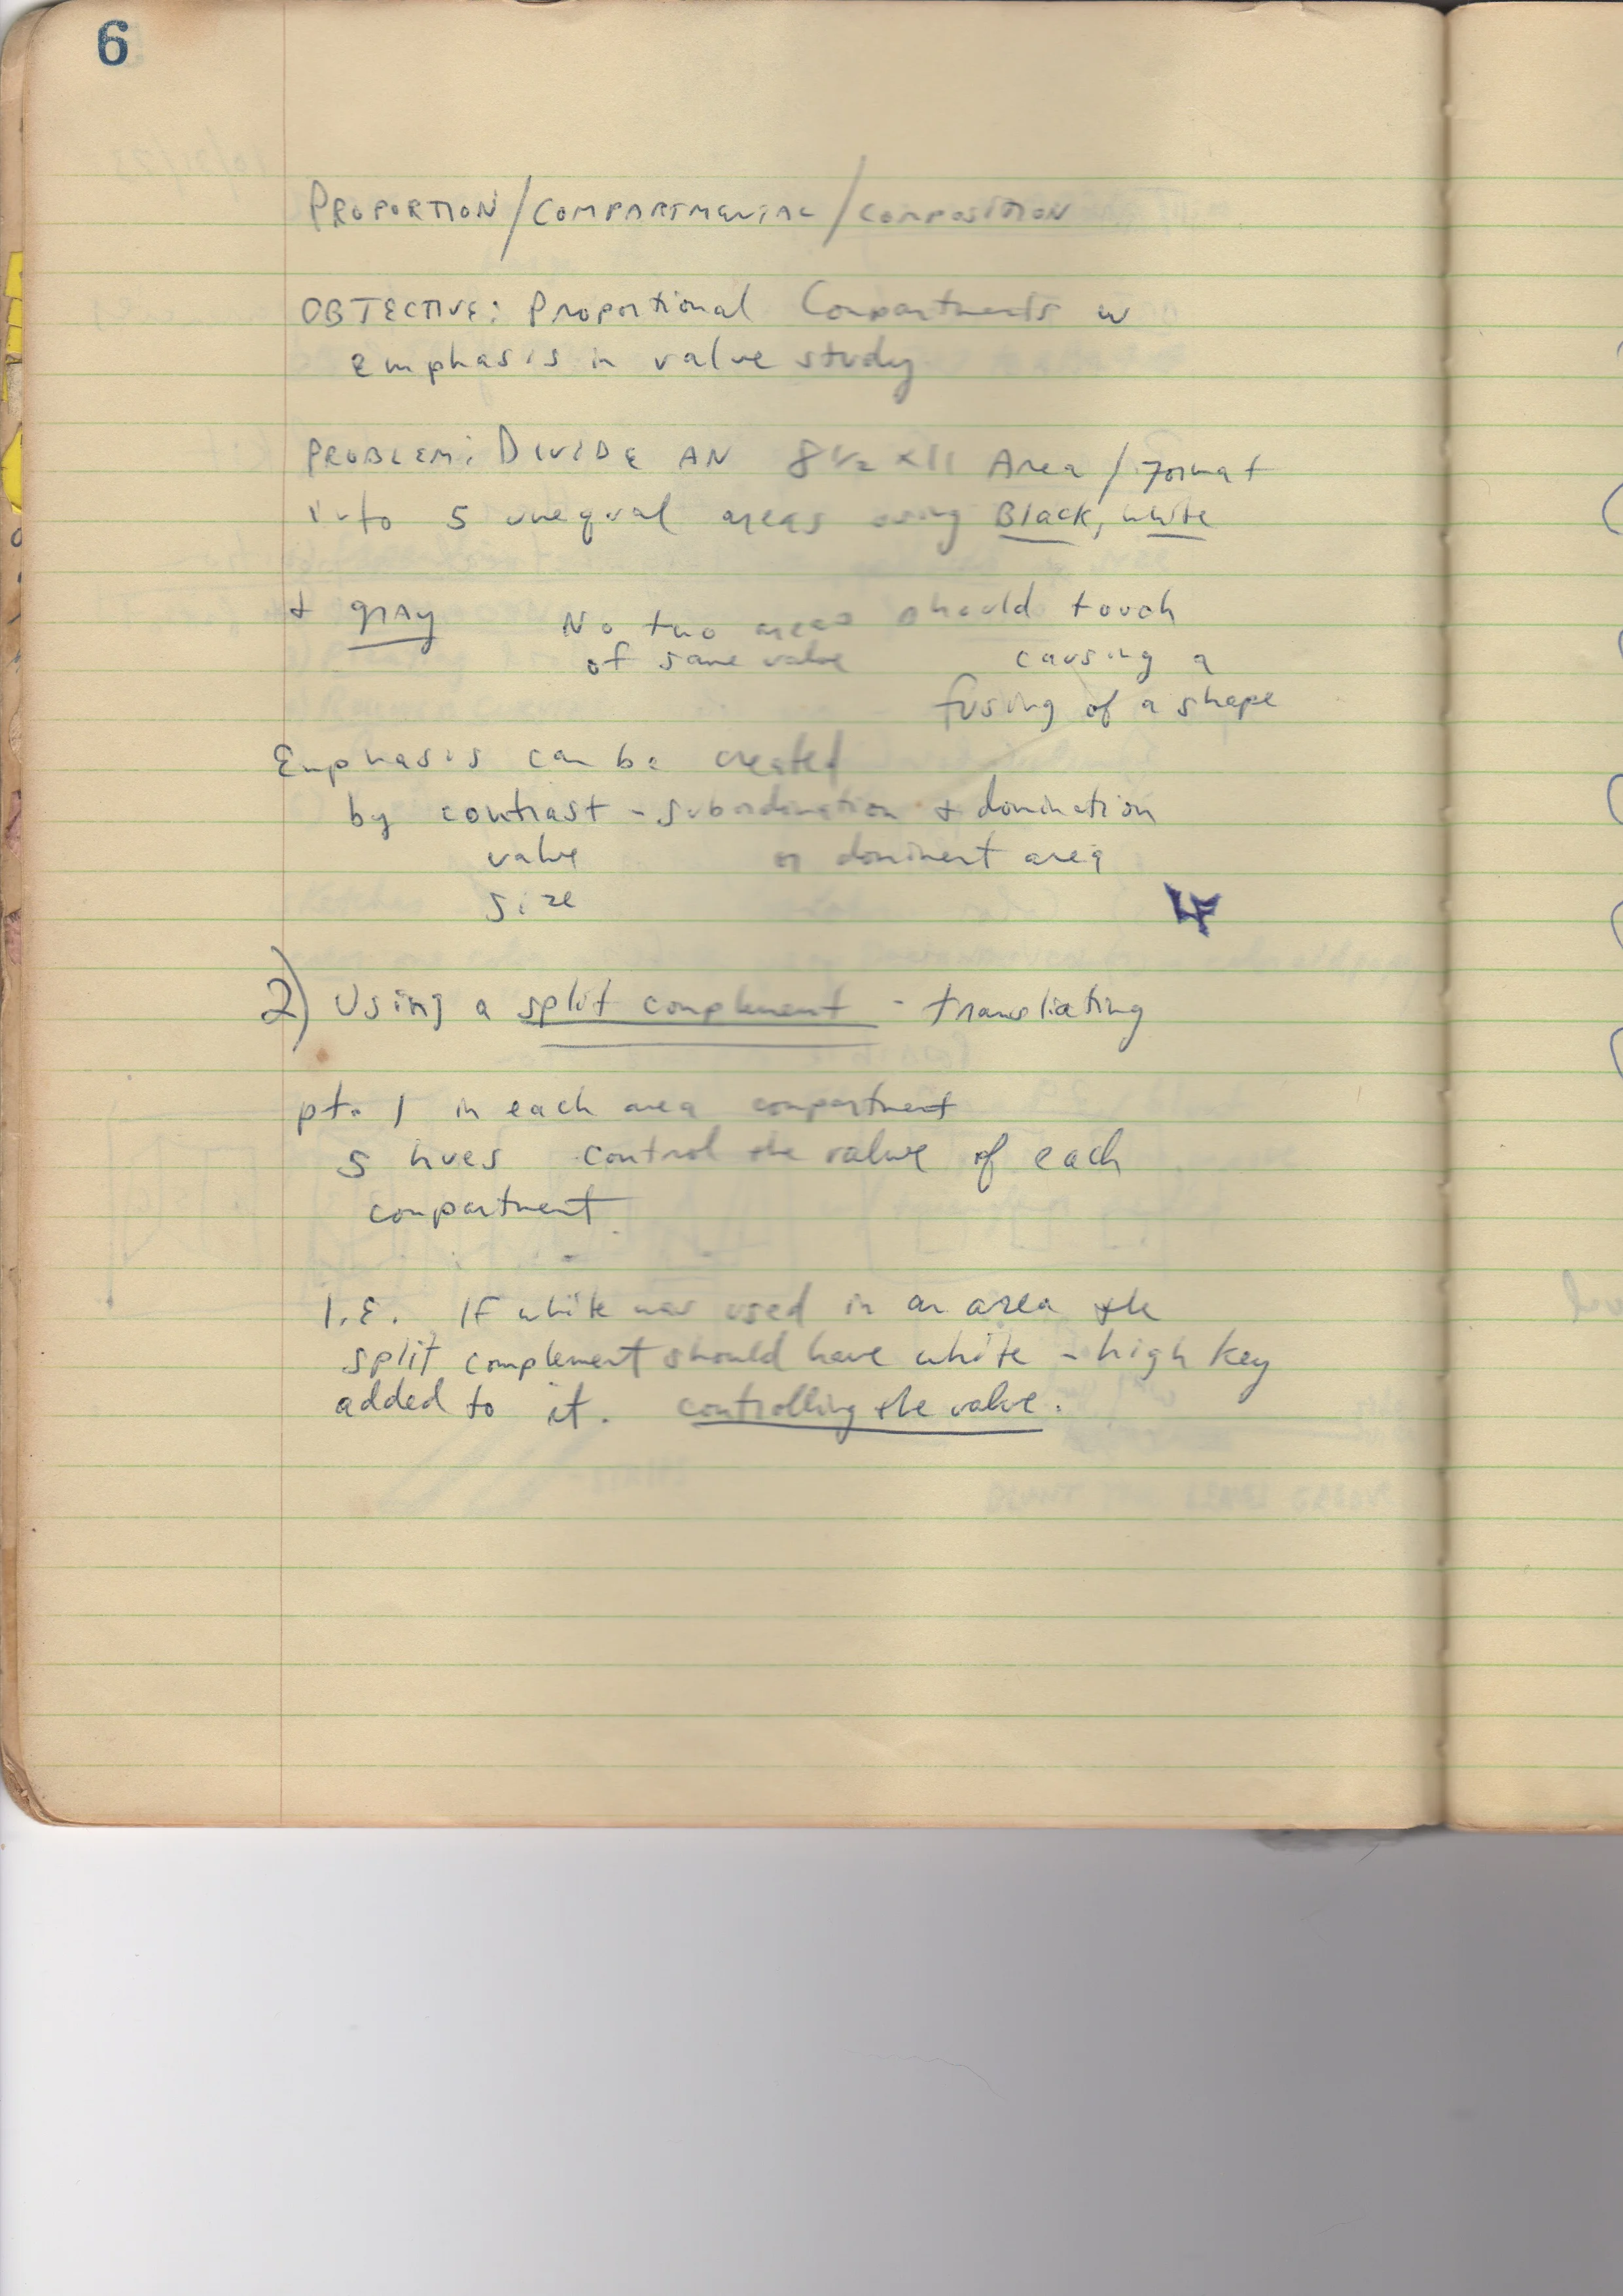 6
PROPORTION/COMPARTMENTAL/COMPOSITION
OBJECTIVE: Proportional Compartments w
emphasis in value study
PROBLEM: DIVIDE AN 8 1/2 x 11 Area / Format
into 5 unequal areas using Black, white
+ gray No two areas should touch
of same value causing a
fusing of a shape
Emphasis can be created
by contrast - subordination + domination
value or dominent area
size
2) Using a split complement - transliating
pt. 1 in each area compartment
5 hues control the value of each
compartment
I.E. If white was used in an area the
split complement should have white - high key
added to it. controlling the value.